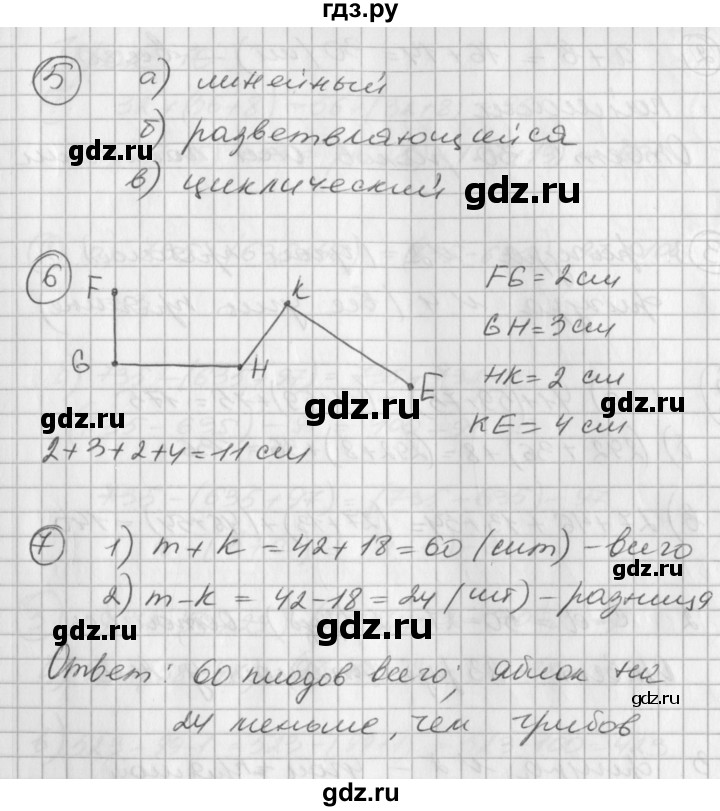 гдз.ру
5 а) линейный
б) разветвляющийся
gdz.ru
в) циклический
gdz.ru
6 F K FG = 2 см
GH = 3 см
G H HK = 2 см
E
gdz.ru gdz.ru gdz.ru
KE = 4 см
2+3+2+4=11 см
7 1) m + k = 42 + 18 = 60 (шт) - всего
gdz.ru
2) m - k = 42 - 18 = 24 (шт) - разница
gdz.ru gdz.ru
Ответ: 60 плодов всего; яблок на
24 меньше, чем грибов
gdz.ru
gdz.ru